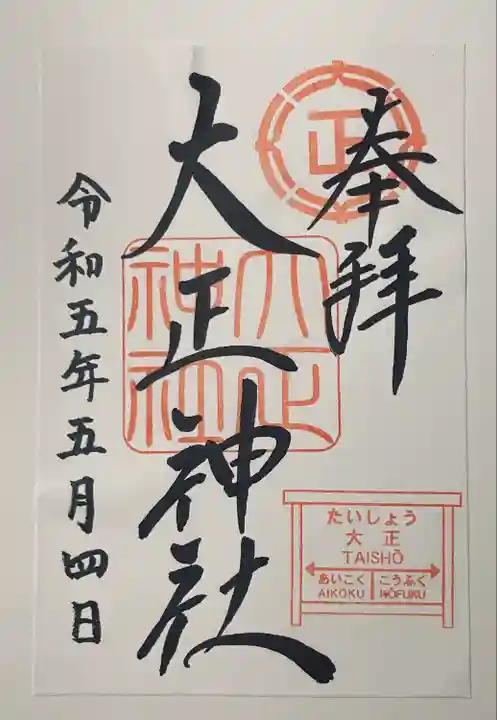 奉拝
正
大正神社
大正
神社
令和五年五月四日
たいしょう
大正
TAISHŌ
あいこく こうふく
AIKOKU KŌFUKU